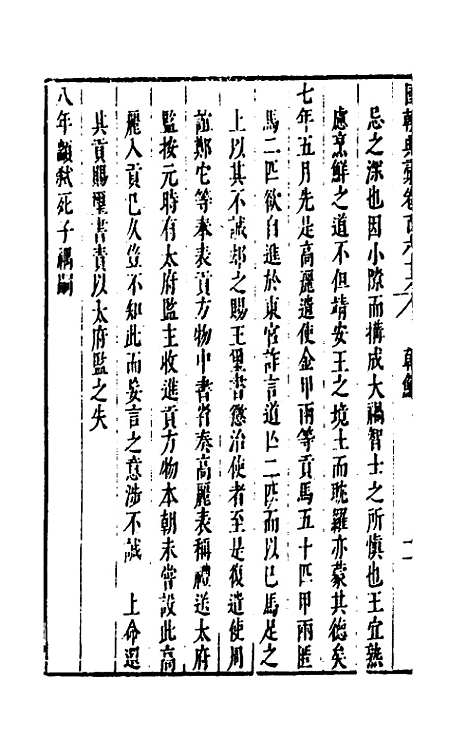 國朝典彙卷百六十六 朝鮮 二
忌之深也因小隙而搆成大禍智士之所慎也王宜熟
慮烹鮮之道不但靖安王之境土而耽羅亦蒙其德矣
七年五月先是高麗遣使金甲雨等貢馬五十匹甲雨匿
馬二匹欲自進於東宮詐言道亡二匹而以已馬足之
上以其不誠却之賜王璽書懲治使者至是復遣使周
誼鄭它等奉表貢方物中書省奏高麗表稱禮送太府
監按元時有太府監主收進貢方物本朝未嘗設此高
麗入貢已久豈不知此而妄言之意涉不誠 上命還
其貢賜璽書責以太府監之失
八年顓弑死子禑嗣